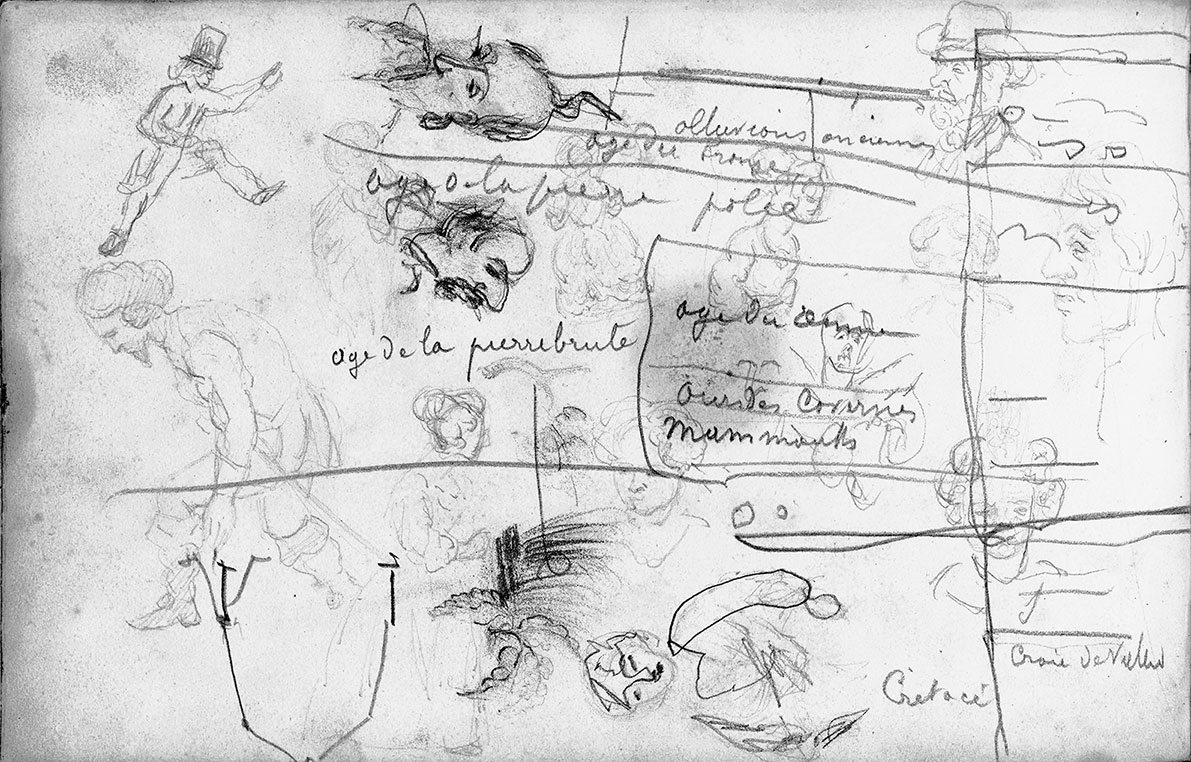 alluvions anciennes
age du bronze
age de la pierre polie
age de la pierre brute
age du
Ours des Cavernes
Mammouths
Crétacé
Craie de